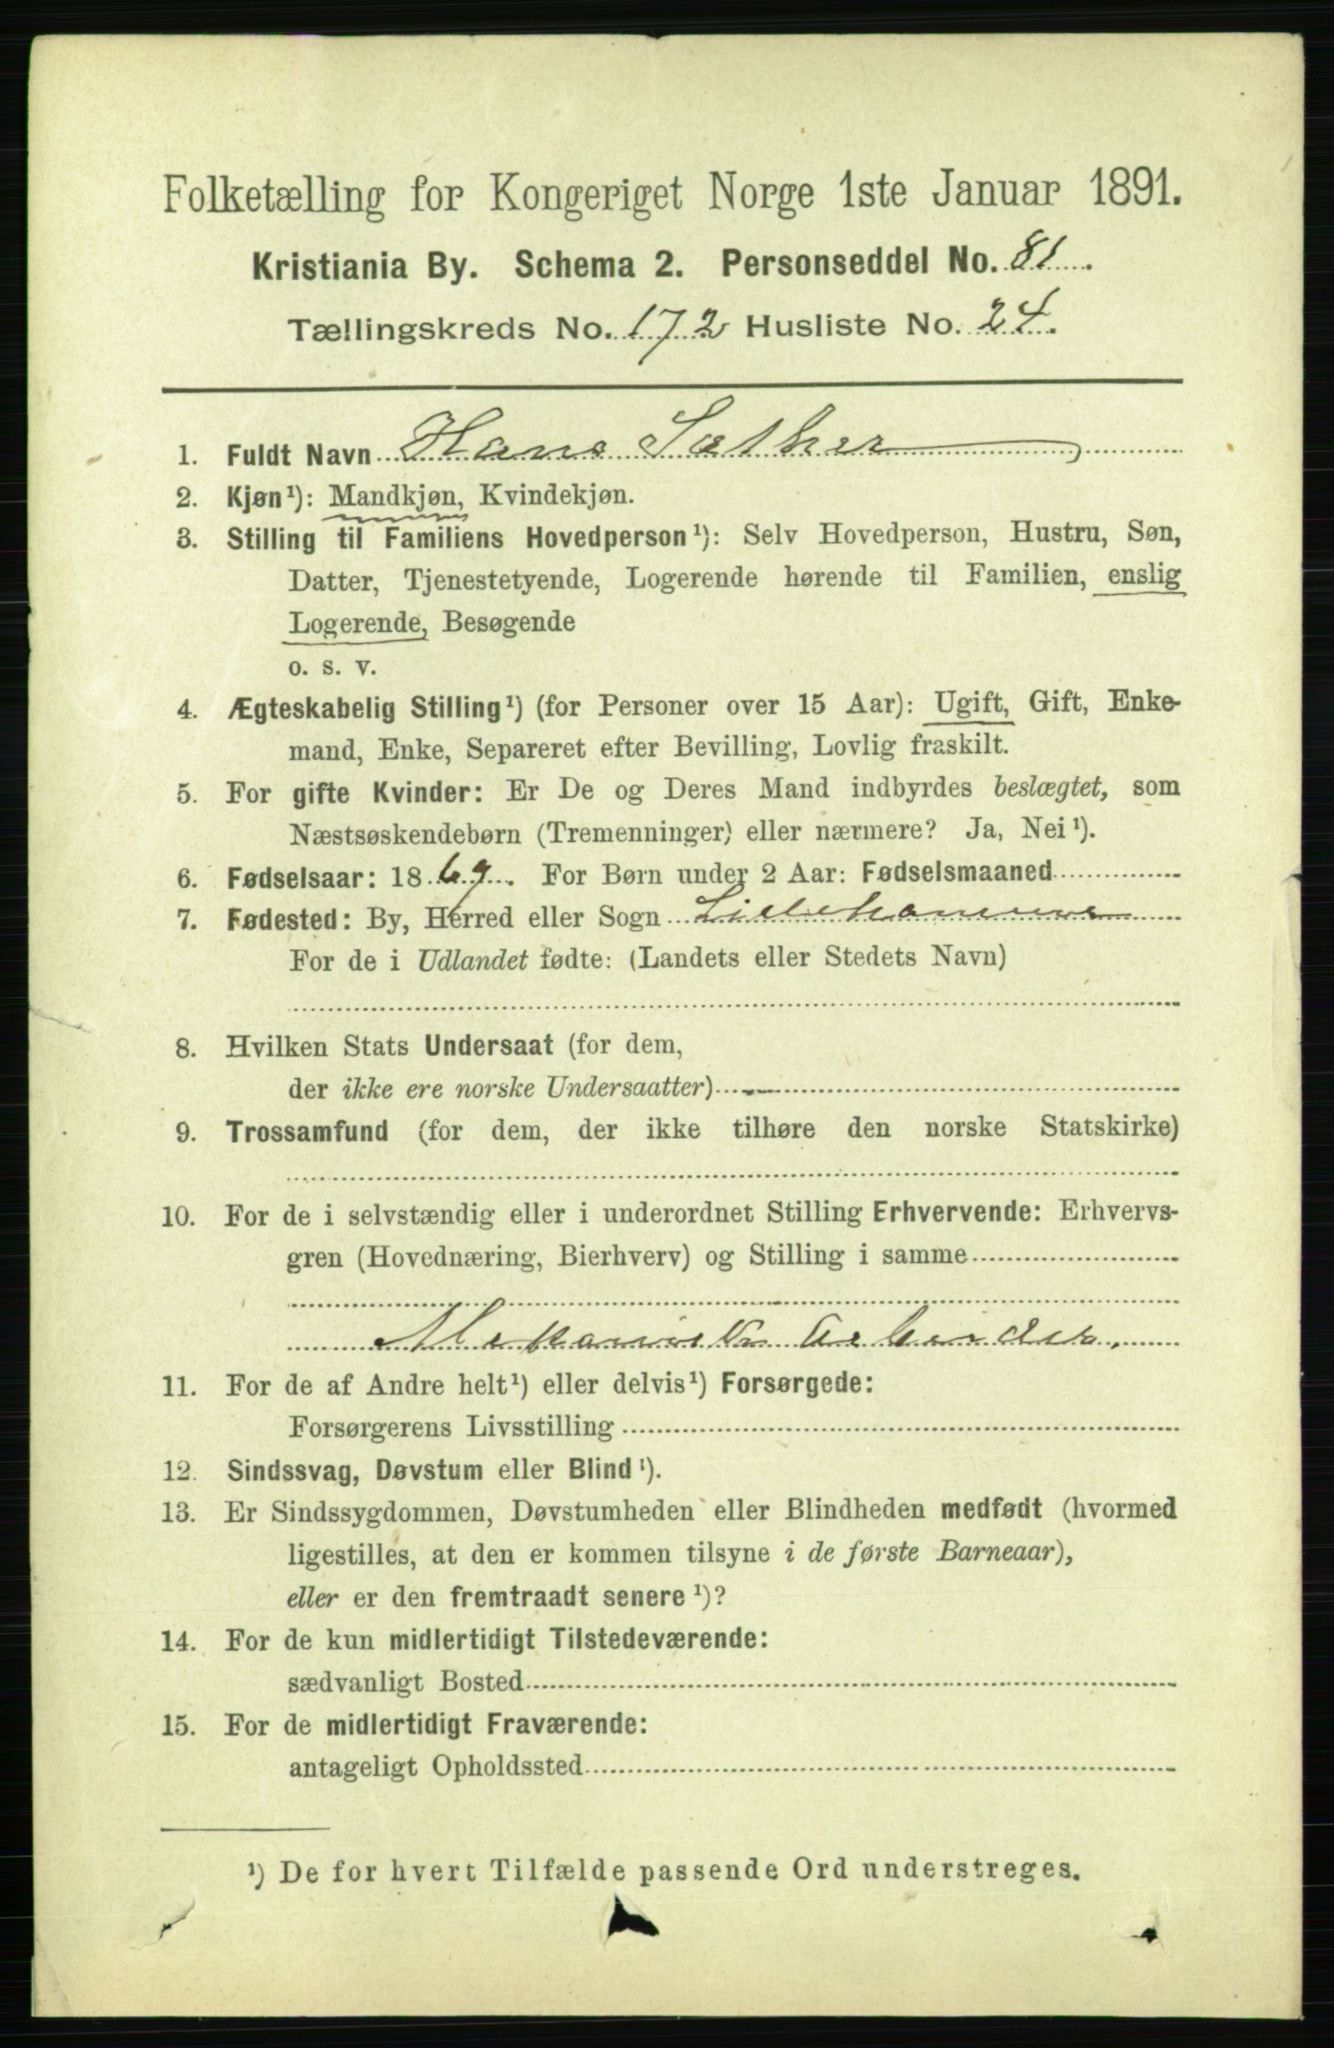 Folketælling for Kongeriget Norge 1ste Januar 1891.
Kristiania By. Schema 2. Personseddel No. 81.
Tællingskreds No. 172 Husliste No. 24.
1. Fuldt Navn Hans Sæther
2. Kjøn¹): Mandkjøn, Kvindekjøn.
3. Stilling til Familiens Hovedperson¹): Selv Hovedperson, Hustru, Søn,
Datter, Tjenestetyende, Logerende hørende til Familien, enslig
Logerende, Besøgende
o. s. v.
4. Ægteskabelig Stilling¹) (for Personer over 15 Aar): Ugift, Gift, Enke-
mand, Enke, Separeret efter Bevilling, Lovlig fraskilt.
5. For gifte Kvinder: Er De og Deres Mand indbyrdes beslægtet, som
Næstsøskendebørn (Tremenninger) eller nærmere? Ja, Nei¹).
6. Fødselsaar: 1869. For Børn under 2 Aar: Fødselsmaaned
7. Fødested: By, Herred eller Sogn Lillehammer
For de i Udlandet fødte: (Landets eller Stedets Navn)
8. Hvilken Stats Undersaat (for dem,
der ikke ere norske Undersaatter) —
9. Trossamfund (for dem, der ikke tilhøre den norske Statskirke)
10. For de i selvstændig eller i underordnet Stilling Erhvervende: Erhvervs-
gren (Hovednæring, Bierhverv) og Stilling i samme
Mekanisk Arbeider.
11. For de af Andre helt¹) eller delvis¹) Forsørgede:
Forsørgerens Livsstilling
12. Sindssvag, Døvstum eller Blind¹).
13. Er Sindssygdommen, Døvstumheden eller Blindheden medfødt (hvormed
ligestilles, at den er kommen tilsyne i de første Barneaar),
eller er den fremtraadt senere¹)?
14. For de kun midlertidigt Tilstedeværende:
sædvanligt Bosted
15. For de midlertidigt Fraværende:
antageligt Opholdssted
¹) De for hvert Tilfælde passende Ord understreges.